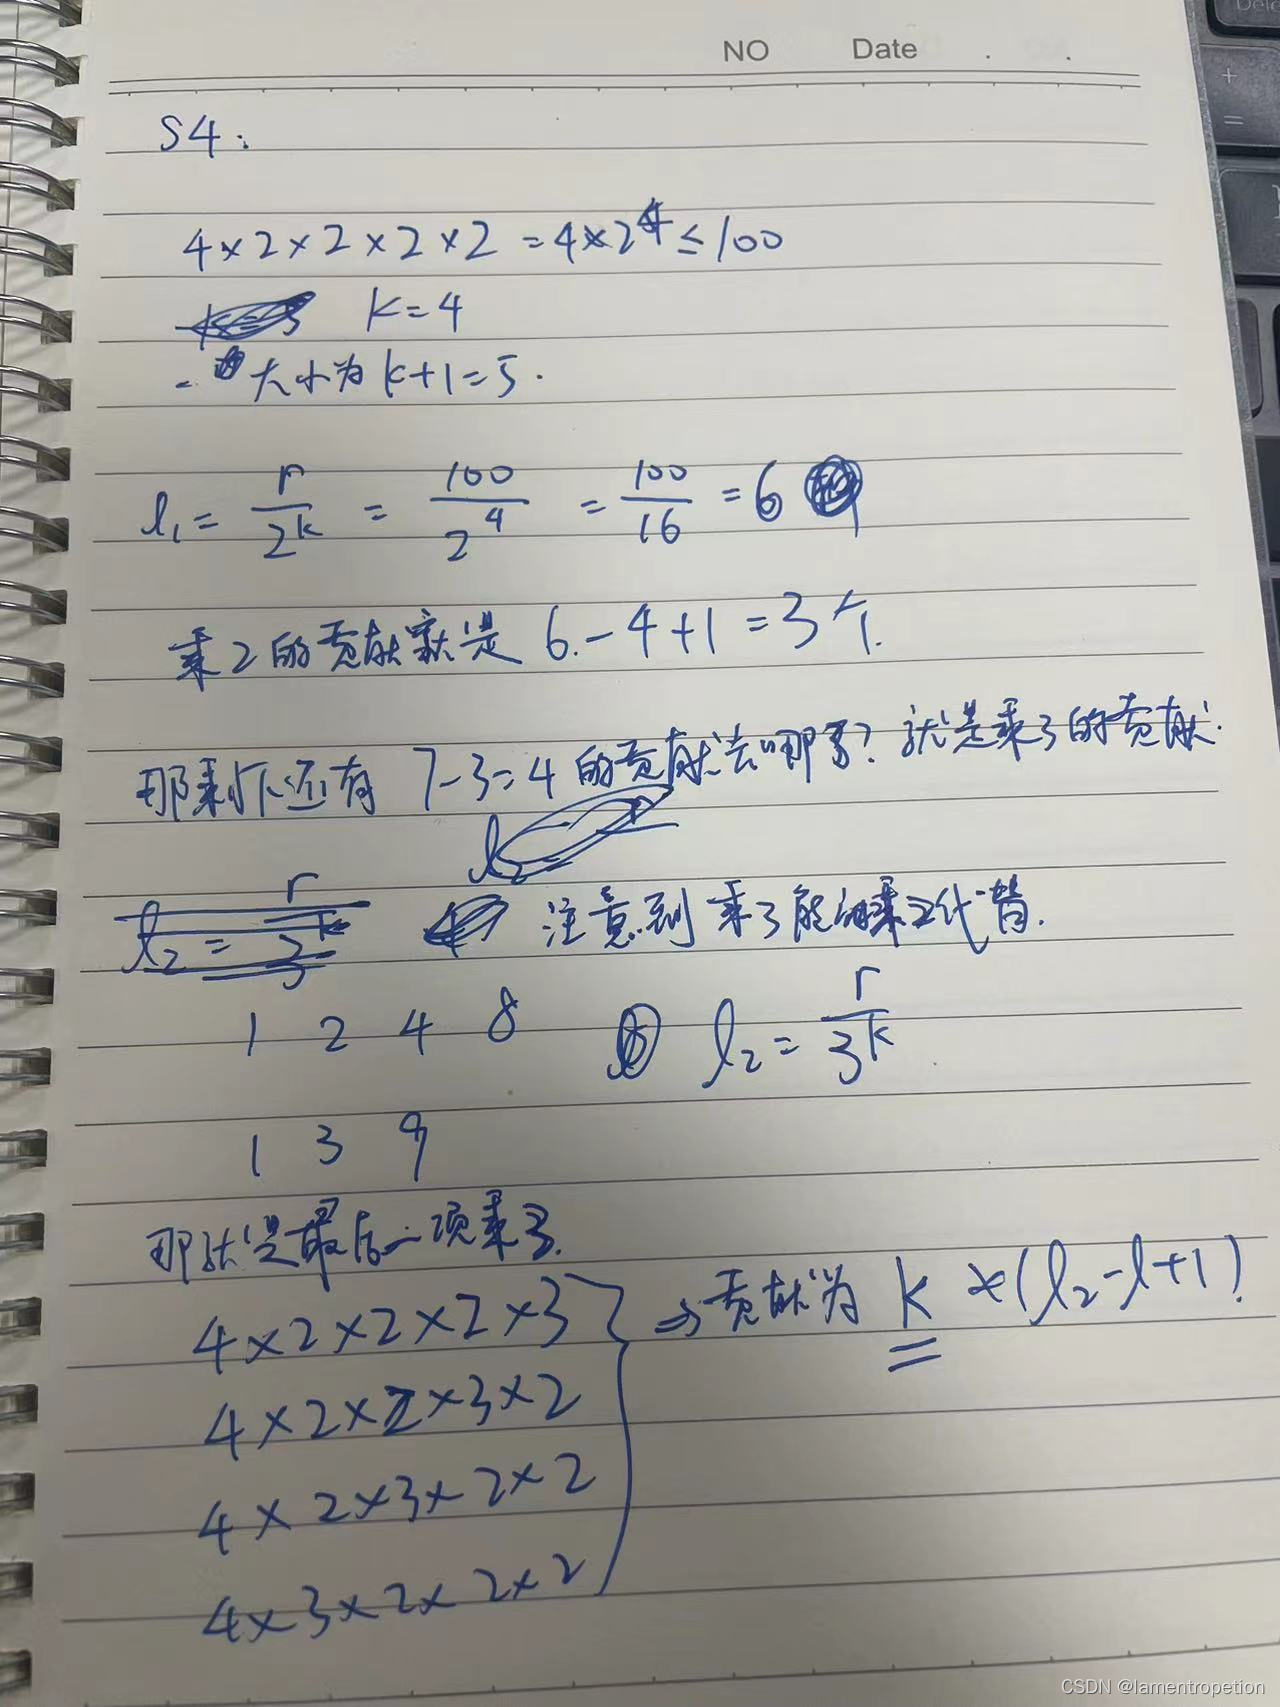 NO Date . .
Delet
+
=
S4:
4×2×2×2×2=4×2^4≤100
k=4
大小为k+1=5.
l₁=r/2^k=100/2^4=100/16=6
乘2的贡献就是6-4+1=3个.
那剩下还有7-3=4的贡献去哪了?就是乘3的贡献.
l₂
l₂=r/3^k 注意到乘3能由乘2代替.
1 2 4 8 l₂=r/3^k
1 3 9
那就是最后一项乘3.
4×2×2×2×3 ⇒贡献为k×(l₂-l+1)
4×2×2×3×2
4×2×3×2×2
4×3×2×2×2
CSDN @lamentropetion